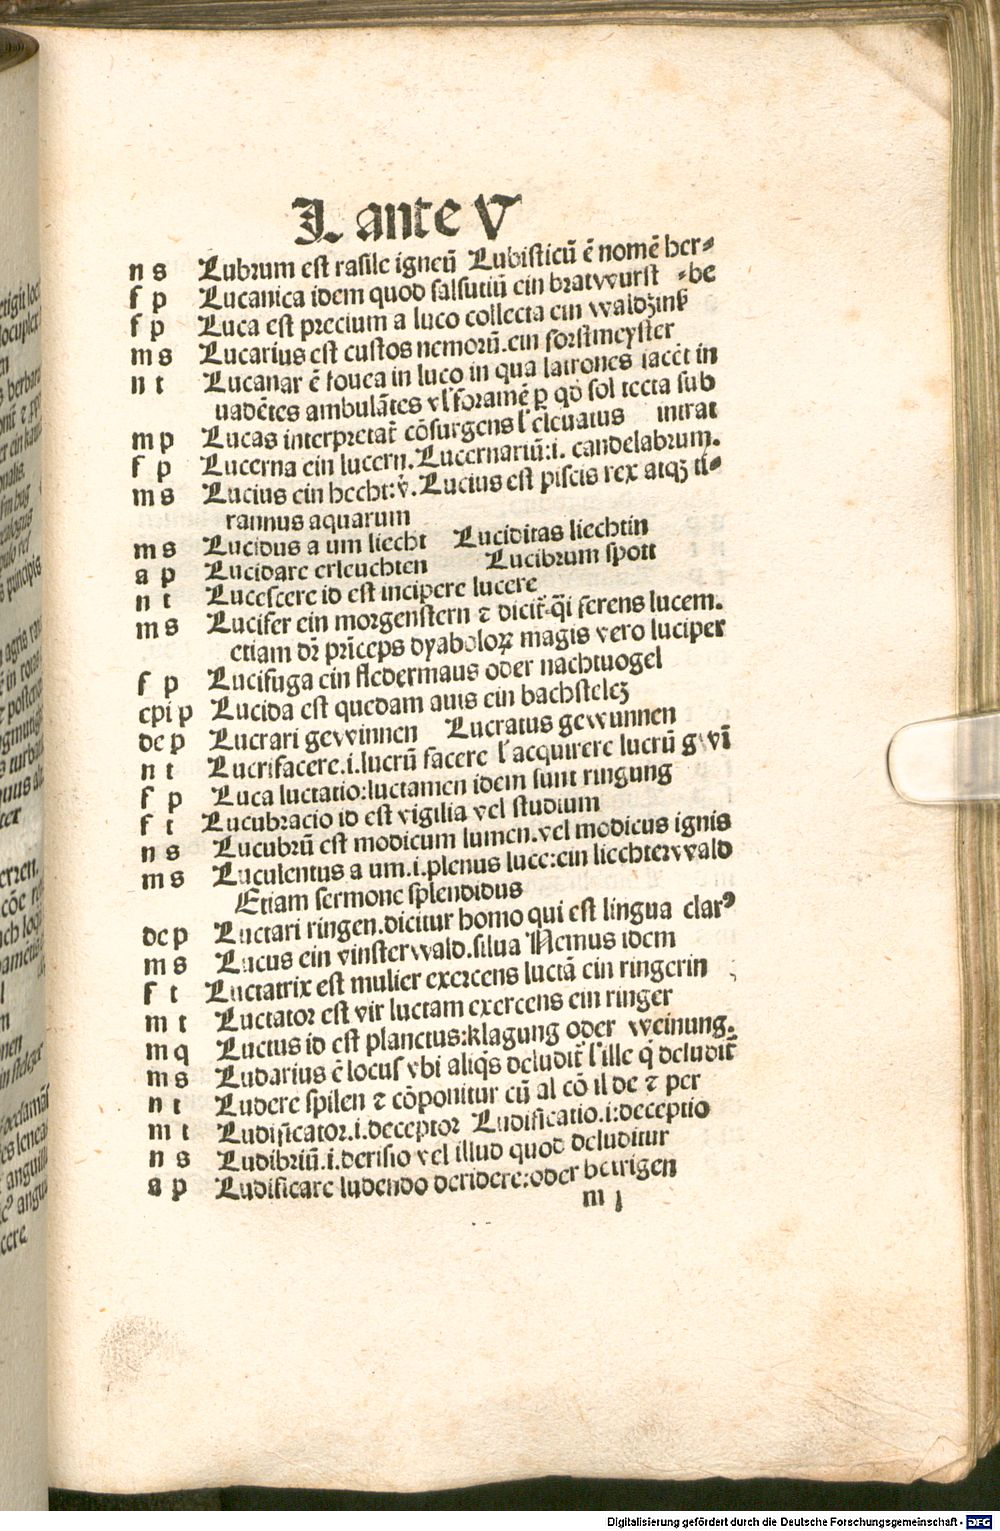 L ante V
n s Lubrum est rasile igneū Lubisticū ē nomē her⸗
f p Lucanica idem quod salsutiū ein bratwurst ⸗be
f p Luca est precium a luco collecta ein waldzinß
m s Lucarius est custos nemorū.ein forstmeyster
n t Lucanar ē fouea in luco in qua latrones iacēt in
uadētes ambulātes vl' foramē ꝑ qd̄ sol tecta sub
m p Lucas interpretat̄ cōsurgens l' eleuatus intrat
f p Lucerna ein lucern.Lucernariū:i. candelabrum.
m s Lucius ein hecht:v̄.Lucius est piscis rex atqꝫ ti⸗
rannus aquarum
m s Lucidus a um liecht Luciditas liechtin
a p Lucidare erleuchten Lucibrum spott
n t Lucescere id est incipere lucere
m s Lucifer ein morgenstern ⁊ dicit̄ q̄i ferens lucem.
etiam dr̄ prīceps dyaboloꝝ magis vero luciper
f p Lucifuga ein fledermaus oder nachtuogel
epi p Lucida est quedam auis ein bachstelcꝫ
de p Lucrari gewinnen Lucratus gewunnen
n t Lucrifacere.i.lucrū facere l' acquirere lucrū gwī
f p Luca luctatio:luctamen idem sunt ringung
f t Lucubracio id est vigilia vel studium
n s Lucubrū est modicum lumen.vel modicus ignis
m s Luculentus a um.i.plenus luce:ein liechterwald
Etiam sermone splendidus
de p Luctari ringen.dicitur homo qui est lingua clarꝰ
m s Lucus ein vinster wald.silua Nemus idem
f t Luctatrix est mulier exercens luctā ein ringerin
m t Luctator est vir luctam exercens ein ringer
m q Luctus id est planctus:klagung oder weinung.
m s Ludarius ē locus vbi aliq̄s deludit̄ l' ille q̄ deludit̄
n t Ludere spilen ⁊ cōponitur cū al cō il de ⁊ per
m t Ludificator.i.deceptor Ludificatio.i:deceptio
n s Ludibriū.i.derisio vel illud quod deluditur
a p Ludificare ludendo deridere:oder betrigen
m j
Digitalisierung gefördert durch die Deutsche Forschungsgemeinschaft - DFG